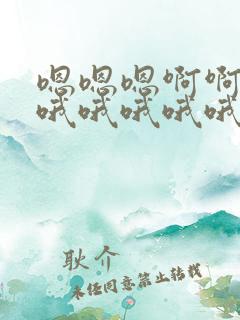 嗯嗯嗯啊啊
哦哦哦哦哦
耿介
未经同意禁止转载